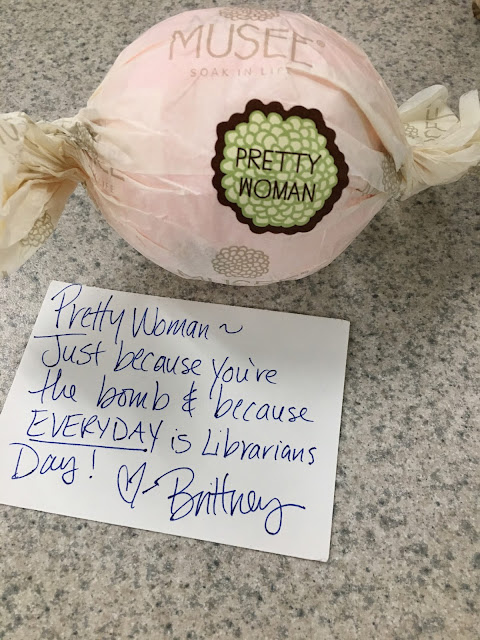 MUSEE
SOAK IN LIFE
PRETTY
WOMAN
Pretty Woman ~
Just because you're
the bomb & because
EVERYDAY is Librarians
Day! ♡ - Brittney